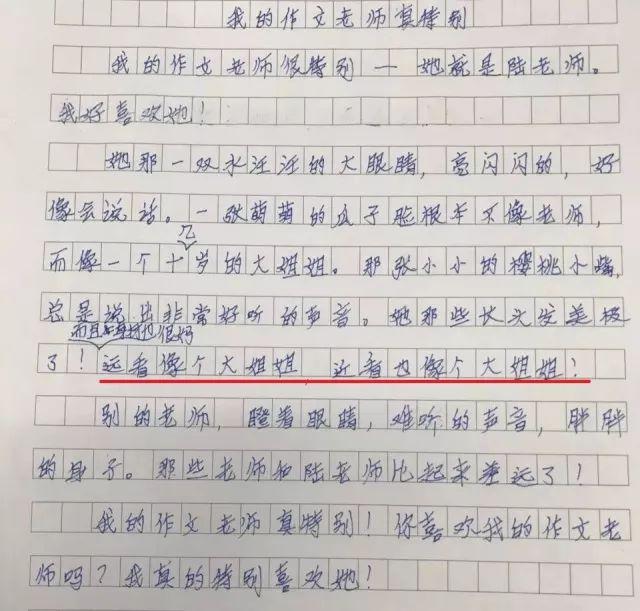 我的作文老师真特别
我的作文老师很特别——她就是陆老师。
我好喜欢她!
她那一双水汪汪的大眼睛,亮闪闪的,好
像会说话。一张萌萌的瓜子脸根本不像老师,
几
而像一个十岁的大姐姐。那张小小的樱桃小嘴,
总是说出非常好听的声音。她那些长头发美极
而且身材也很好
了!远看像个大姐姐,近看也像个大姐姐!
别的老师,瞪着眼睛,难听的声音,胖胖
的身子。那些老师和陆老师比起来差远了!
我的作文老师真特别!你喜欢我的作文老
师吗?我真的特别喜欢她!